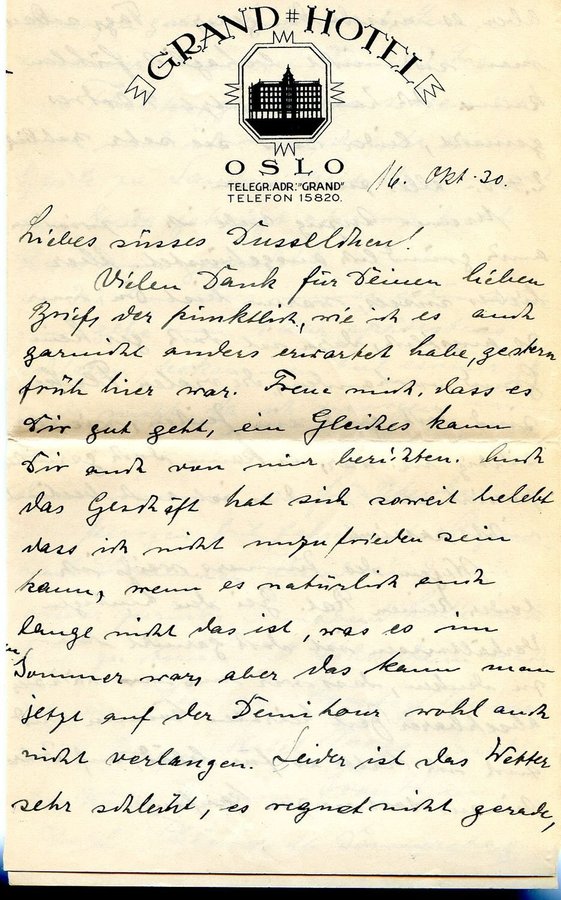 GRAND HOTEL
OSLO
TELEGR. ADR: "GRAND"
TELEFON 15820.
16. Okt. 30.
Liebes süsses Dusselchen!
Vielen Dank für Deinen lieben
Brief, der pünktlich, wie ich es auch
garnicht anders erwartet habe, gestern
früh hier war. Freue mich, dass es
Dir gut geht, ein Gleiches kann
Dir auch von mir berichten. Auch
das Geschäft hat sich soweit belebt
dass ich nicht unzufrieden sein
kann, wenn es natürlich auch
lange nicht das ist, was es im
Sommer war, aber das kann man
jetzt auf der Demihour wohl auch
nicht verlangen. Leider ist das Wetter
sehr schlecht, es regnet nicht gerade,